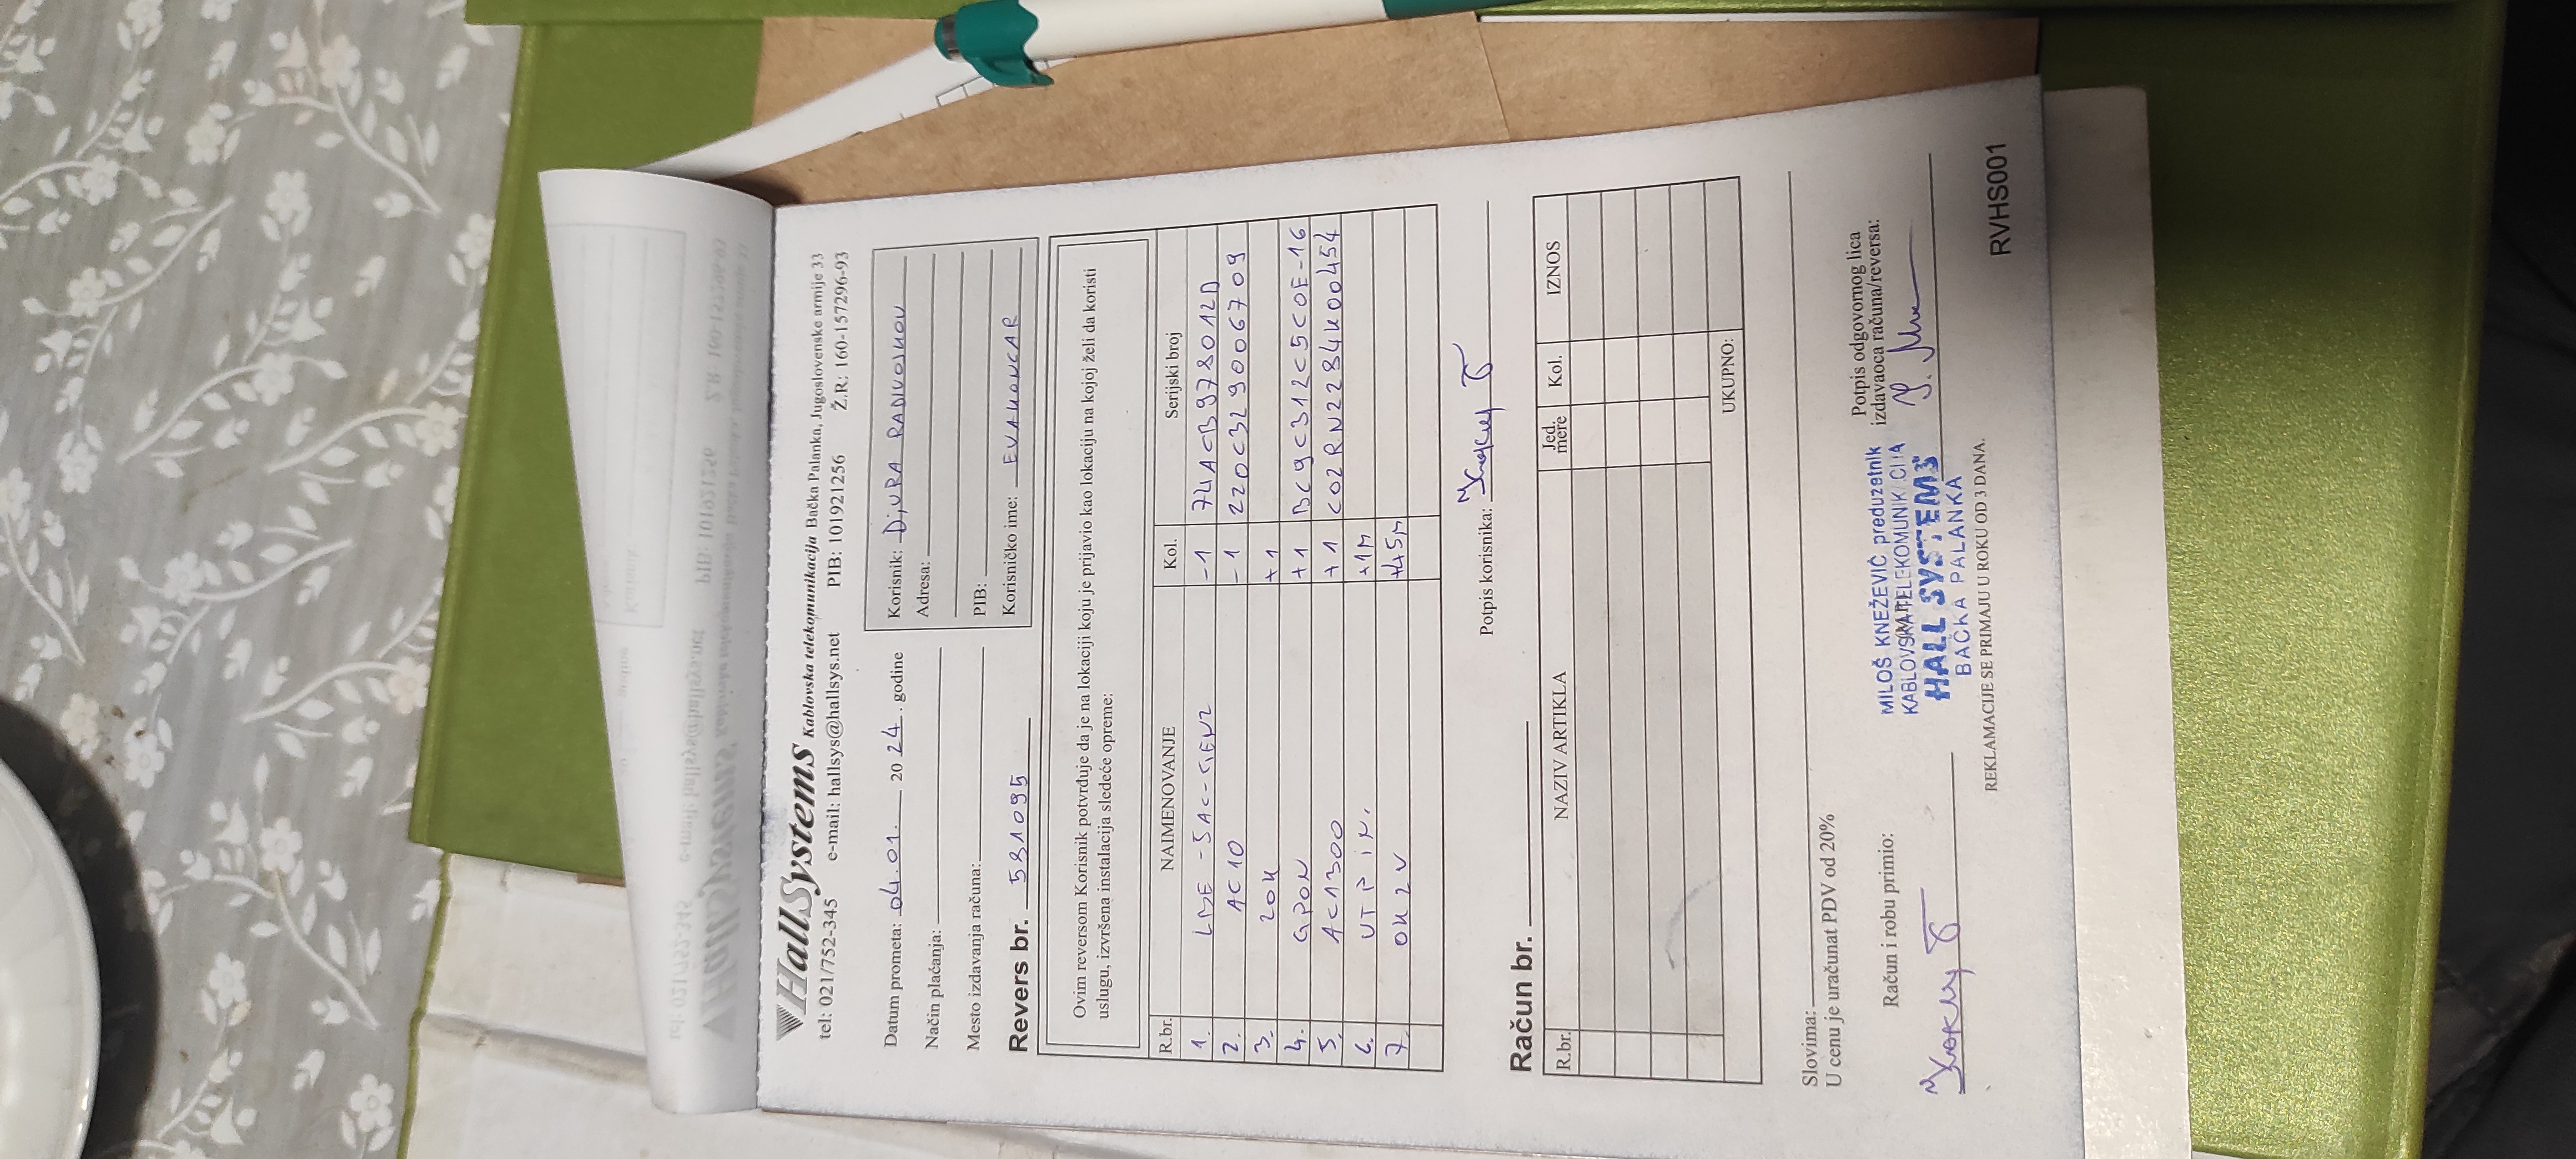 HallSystemS Kablovska telekomunikacija Bačka Palanka, Jugoslovenske armije 33
tel: 021/752-345 e-mail: hallsys@hallsys.net PIB: 101921256 Ž.R: 160-157296-93
Datum prometa: 04.01. 20 24. godine
Način plaćanja:
Mesto izdavanja računa:
Korisnik: DjURA RADIVOJKOV
Adresa:
PIB:
Korisničko ime: EVAKONCAR
Revers br. 581095
Ovim reversom Korisnik potvrđuje da je na lokaciji koju je prijavio kao lokaciju na kojoj želi da koristi
uslugu, izvršena instalacija sledeće opreme:
R.br. NAIMENOVANJE Kol. Serijski broj
1. LBE-5AC-GEN2 -1 74ACB978012D
2. AC10 -1 220C329006709
3. ZOK +1
4. GPON +1 BC9C312C5C0E-16
5. AC1300 +1 C02RN2284K00454
6. UTP iN. +1m
7. OK2V +45m
Potpis korisnika:
Račun br.
R.br. NAZIV ARTIKLA Jed. mere Kol. IZNOS
UKUPNO:
Slovima:
U cenu je uračunat PDV od 20%
Račun i robu primio:
MILOŠ KNEŽEVIĆ preduzetnik
KABLOVSKA TELEKOMUNIKACIJA
HALL SYSTEMS
BAČKA PALANKA
Potpis odgovornog lica
izdavaoca računa/reversa:
REKLAMACIJE SE PRIMAJU U ROKU OD 3 DANA.
RVHS001